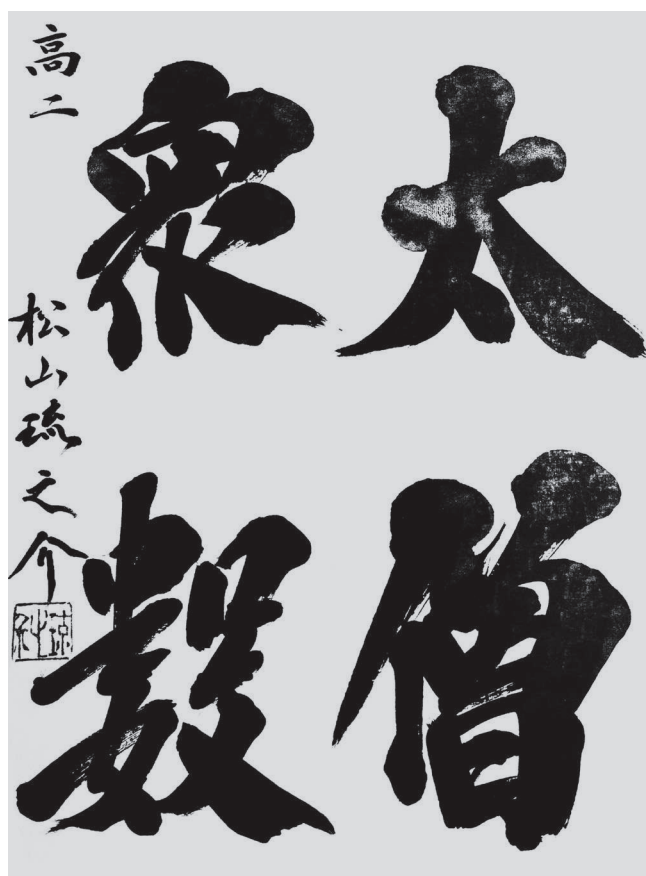 太僧
衆數
高二 松山琉之介